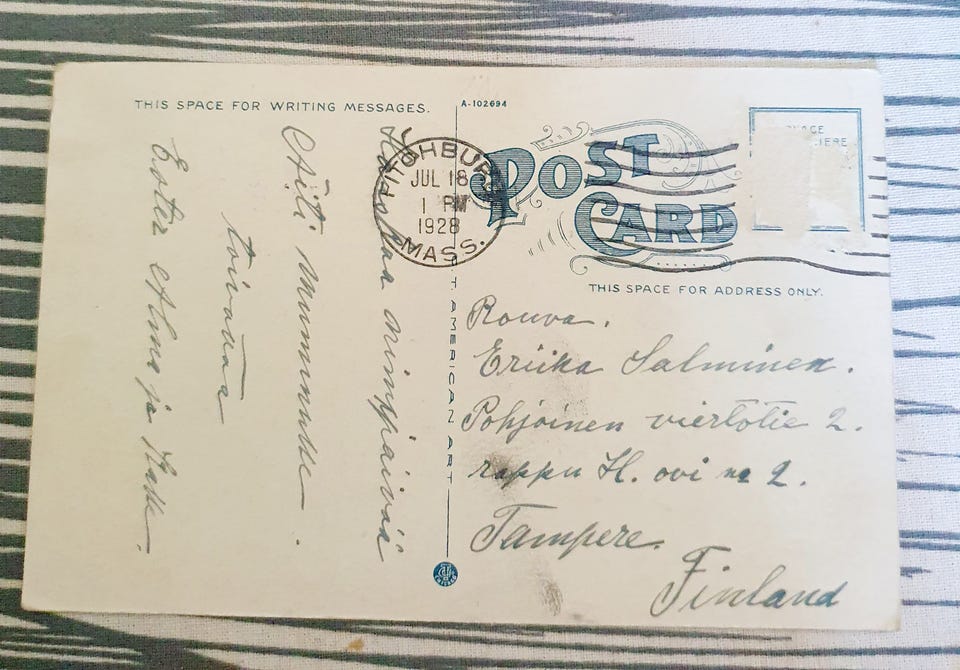 THIS SPACE FOR WRITING MESSAGES.
Hauskaa nimipäivää
Äiti Mummulle.
Ester Alma ja Kalle.
A-102694
FITCHBURG
JUL 18
1 PM
1928
MASS.
POST
CARD
HERE
T AMERICAN ART
CHICAGO
THIS SPACE FOR ADDRESS ONLY.
Rouva.
Eriika Salminen.
Pohjoinen viertotie 2.
rappu H. ovi no 2.
Tampere.
Finland